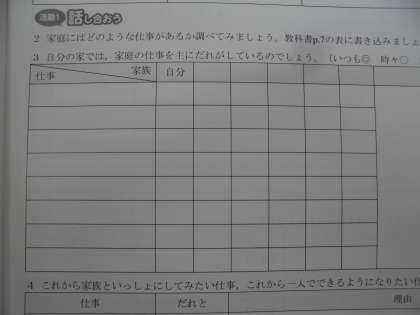 活動1 話し合おう
2 家庭にはどのような仕事があるか調べてみましょう。教科書p.7の表に書き込みましょ
3 自分の家では，家庭の仕事を主にだれがしているのでしょう。（いつも◎ 時々○
家族 自分
仕事
4 これから家族といっしょにしてみたい仕事，これから一人でできるようになりたい仕
仕事 だれと 理由